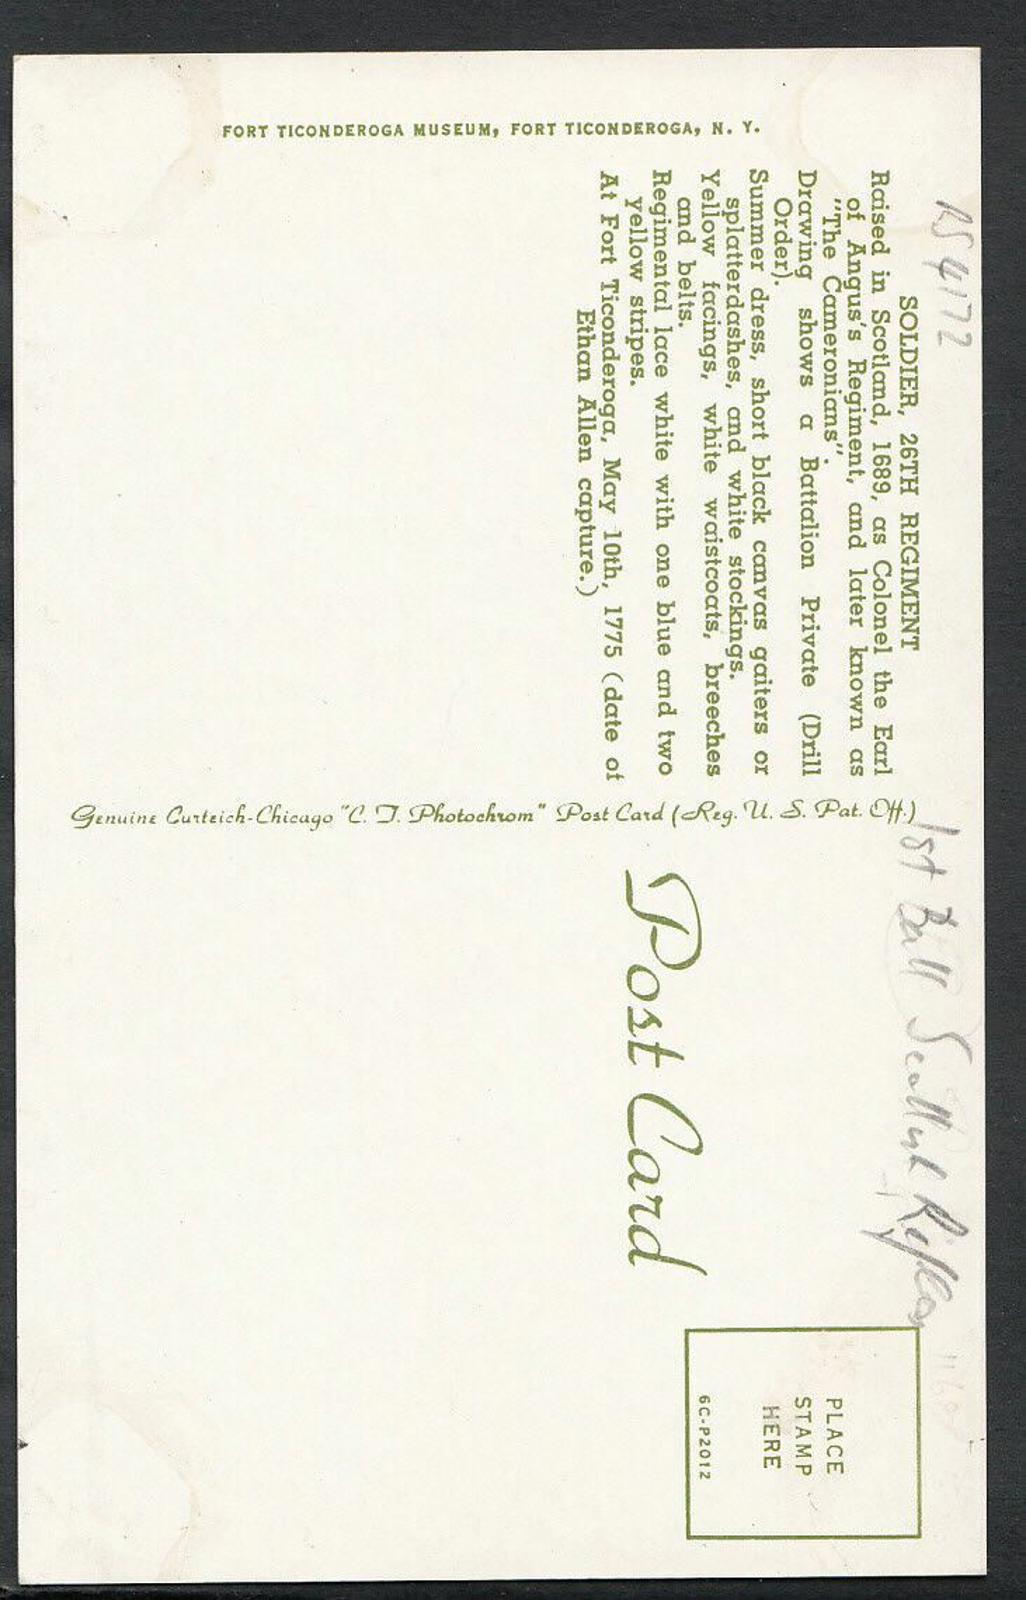 FORT TICONDEROGA MUSEUM, FORT TICONDEROGA, N. Y.
RS 4172
SOLDIER, 26TH REGIMENT
Raised in Scotland, 1689, as Colonel the Earl
of Angus's Regiment, and later known as
"The Cameronians".
Drawing shows a Battalion Private (Drill
Order).
Summer dress, short black canvas gaiters or
splatterdashes, and white stockings.
Yellow facings, white waistcoats, breeches
and belts.
Regimental lace white with one blue and two
yellow stripes.
At Fort Ticonderoga, May 10th, 1775 (date of
Ethan Allen capture.)
Genuine Curteich-Chicago "C. T. Photochrom" Post Card (Reg. U. S. Pat. Off.)
1st Scottish Rifles
Post Card
PLACE
STAMP
HERE
6C-P2012